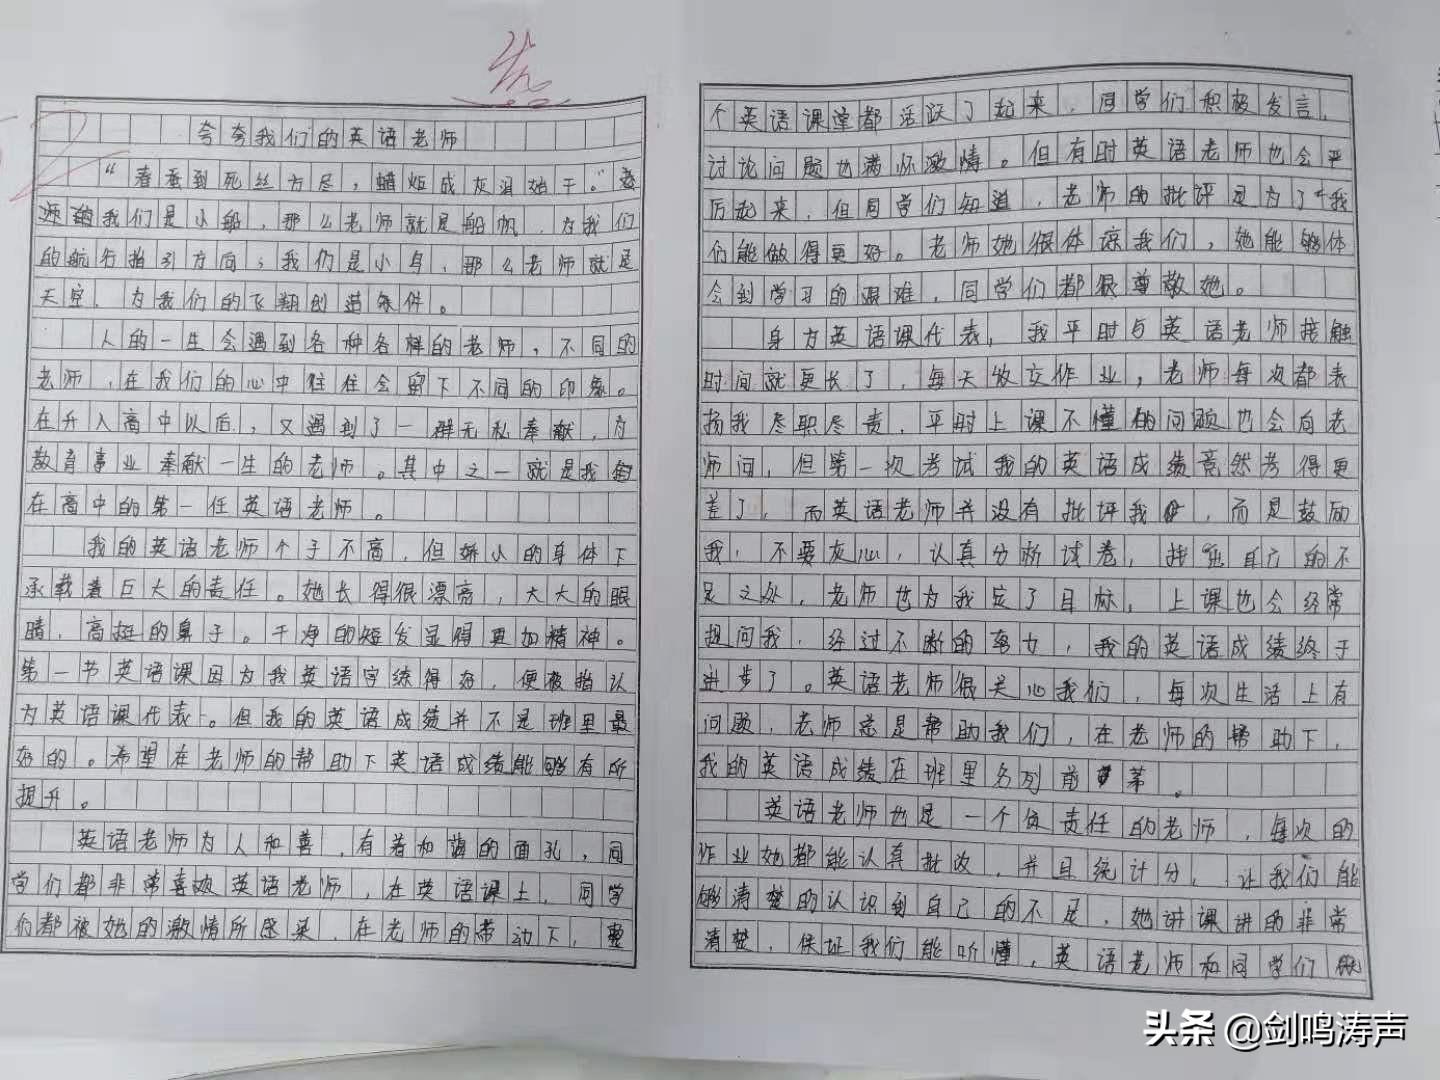 夸夸我们的英语老师
“春蚕到死丝方尽，蜡炬成灰泪始干。”老
师我们是小船，那么老师就是船帆，为我们
的航行指引方向；我们是小鸟，那么老师就是
天空，为我们的飞翔创造条件。
人的一生会遇到各种各样的老师，不同的
老师，在我们的心中往往会留下不同的印象。
在升入高中以后，又遇到了一群无私奉献，为
教育事业奉献一生的老师。其中之一就是我
在高中的第一任英语老师。
我的英语老师个子不高，但娇小的身体下
承载着巨大的责任。她长得很漂亮，大大的眼
睛，高挺的鼻子。干净的短发显得更加精神。
第一节英语课因为我英语字练得好，便被指认
为英语课代表。但我的英语成绩并不是班里最
好的。希望在老师的帮助下英语成绩能够有所
提升。
英语老师为人和善，有着和蔼的面孔，同
学们都非常喜欢英语老师，在英语课上，同学
们都被她的激情所感染，在老师的带动下，整
个英语课堂都活跃了起来，同学们积极发言，
讨论问题也满怀激情。但有时英语老师也会严
厉起来，但同学们知道，老师的批评是为了我
们能做得更好。老师她很体谅我们，她能够体
会到学习的艰难，同学们都很尊敬她。
身为英语课代表，我平时与英语老师接触
时间就更长了，每天收交作业，老师每次都表
扬我尽职尽责，平时上课不懂的问题也会向老
师问，但第一次考试我的英语成绩竟然考得更
差了，而英语老师并没有批评我，而是鼓励
我，不要灰心，认真分析试卷，找到自己的不
足之处，老师也为我定了目标，上课也会经常
提问我，经过不断的努力，我的英语成绩终于
进步了。英语老师很关心我们，每次生活上有
问题，老师总是帮助我们，在老师的帮助下，
我的英语成绩在班里名列前茅。
英语老师也是一个负责任的老师，每次的
作业她都能认真批改，并且统计分，让我们能
够清楚的认识到自己的不足，她讲课讲的非常
清楚，保证我们能听懂，英语老师和同学们
头条 @剑鸣涛声